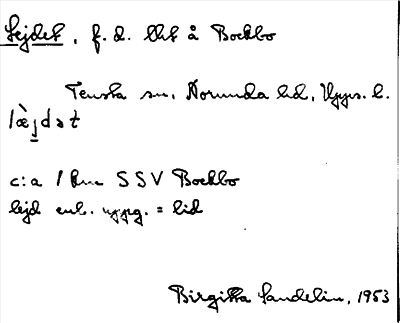 Lejdet, f. d. utk å Bockbo
Tensta sn, Norunda hd, Upps. l.
læ̀jdət
c:a 1 km SSV Bockbo
lejd enl. uppg. = lid
Birgitta Sandelin, 1953